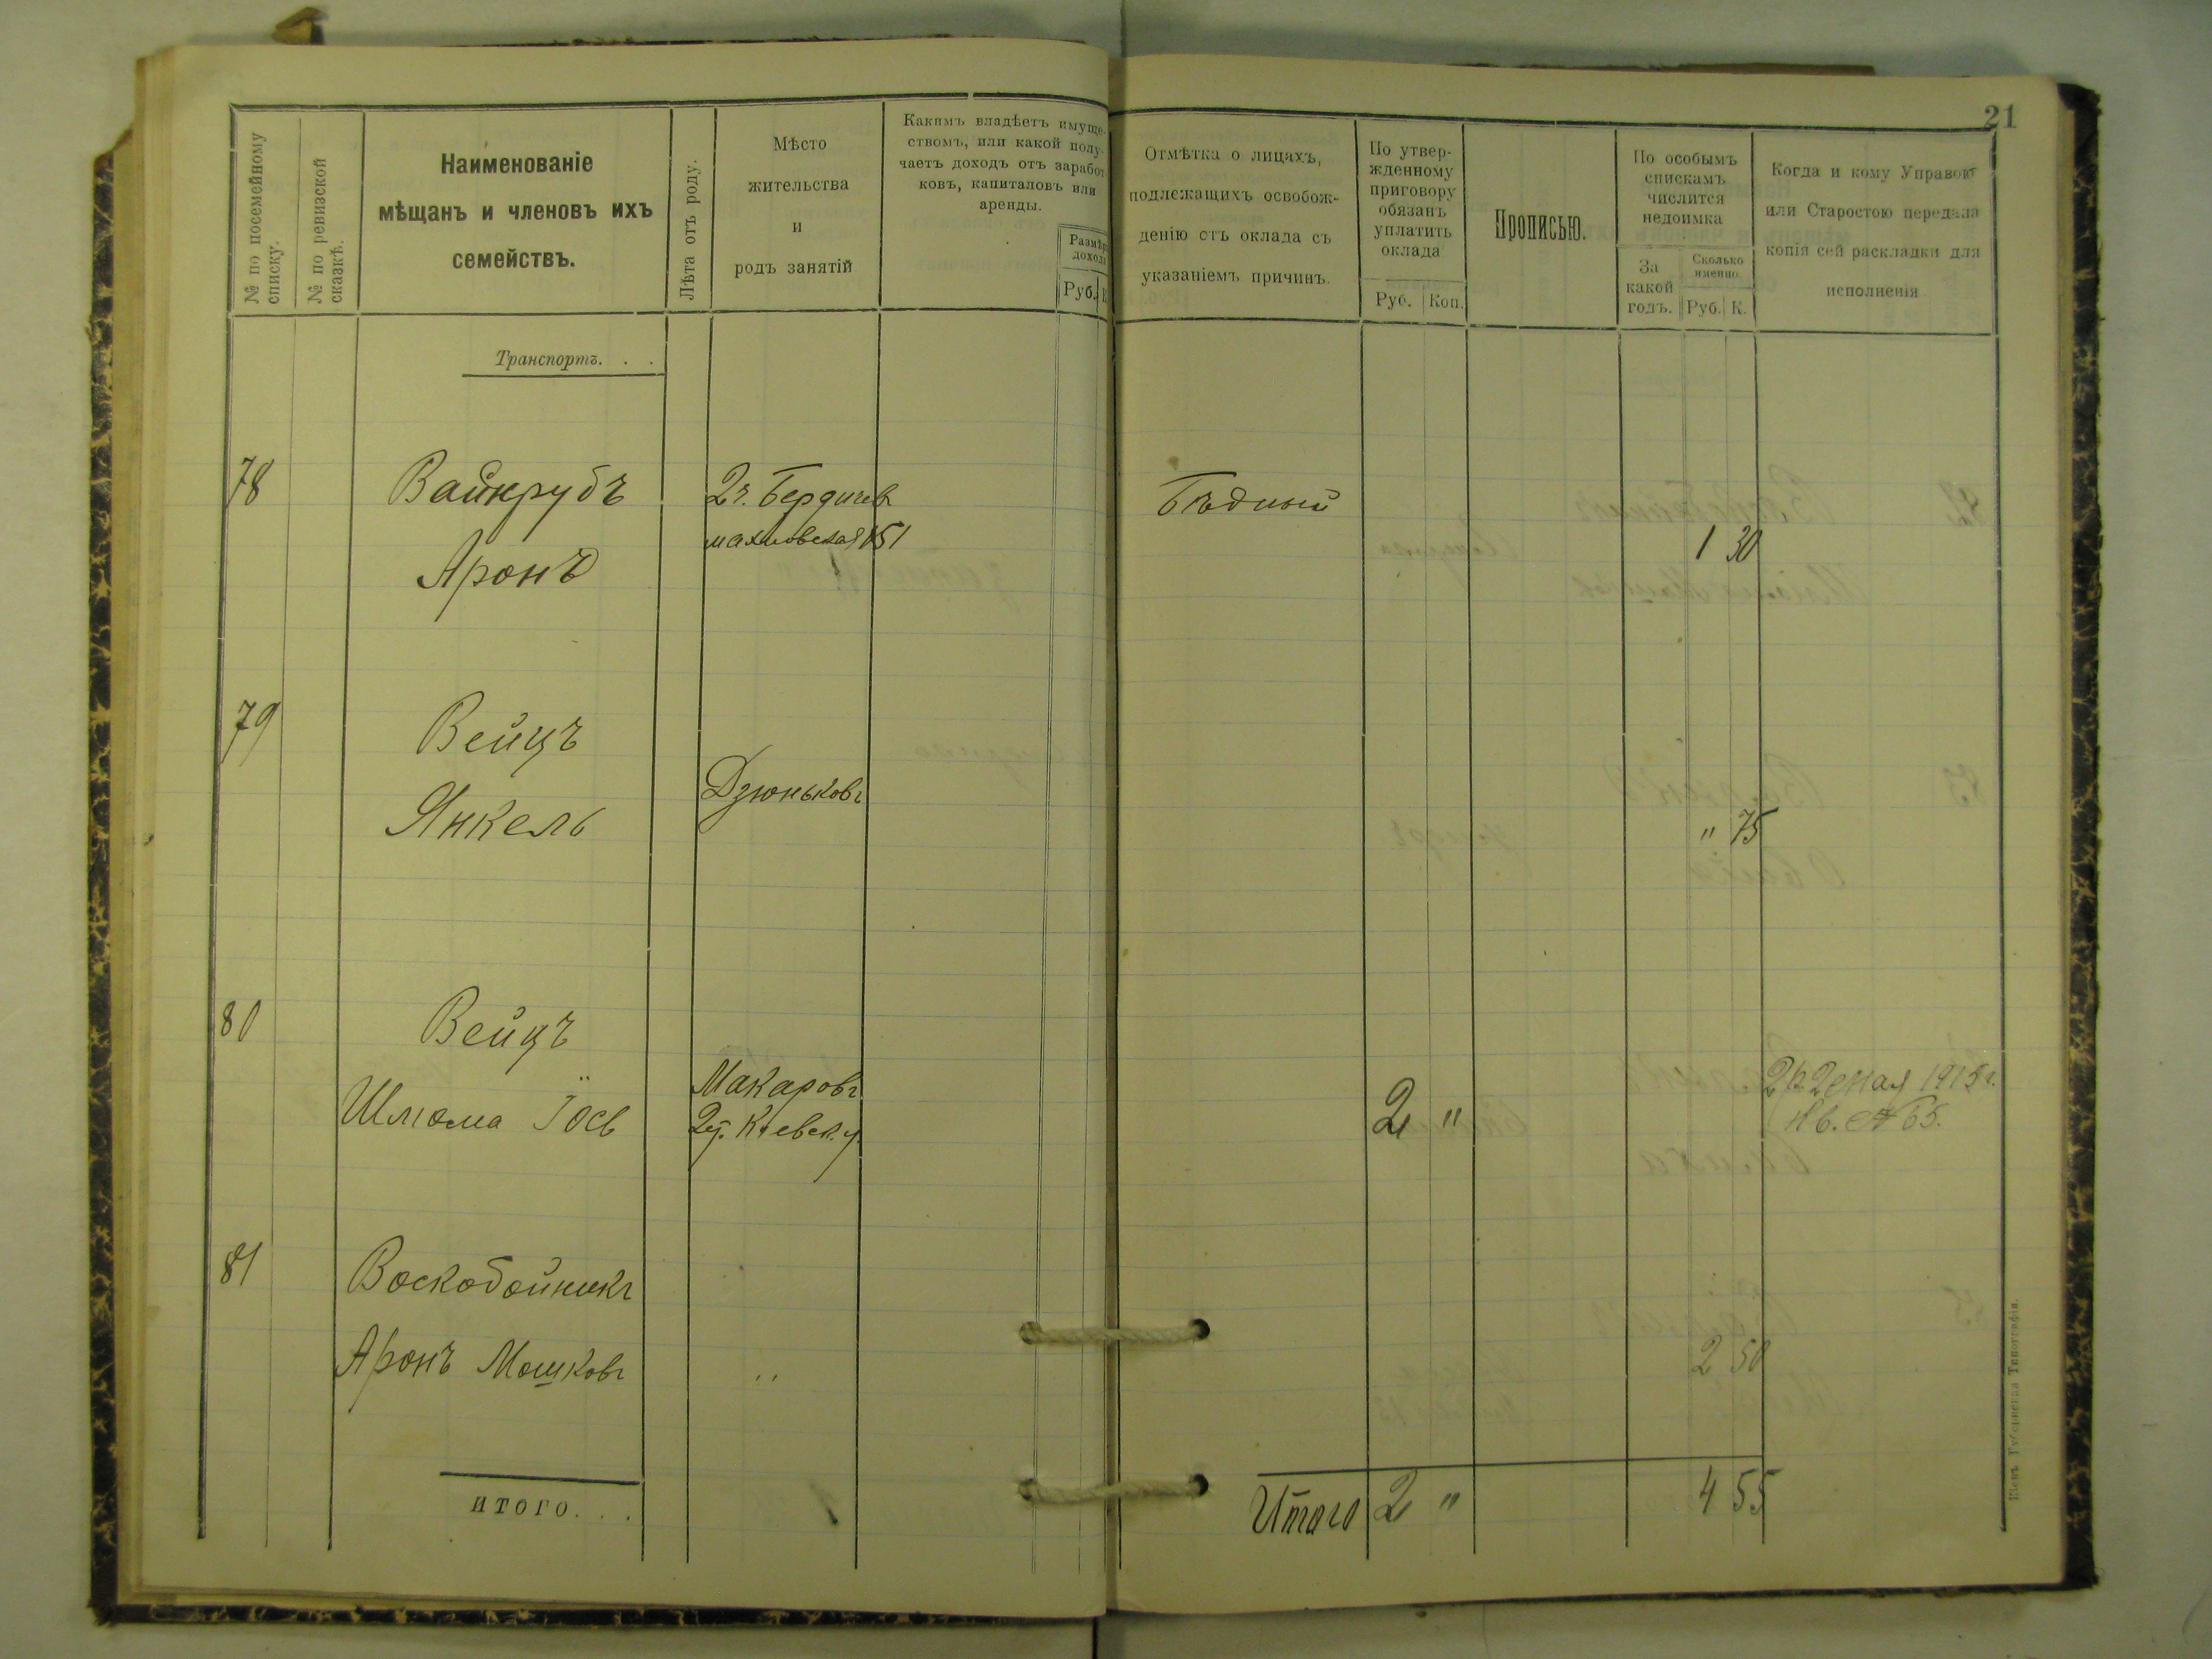 21
№ по посемейному
списку.
№ по ревизской
сказкѣ.
Наименованіе
мѣщанъ и членовъ ихъ
семействъ.
Лѣта отъ роду.
Мѣсто
жительства
и
родъ занятій
Какимъ владѣетъ имуще-
ствомъ, или какой полу-
чаетъ доходъ отъ заработ-
ковъ, капиталовъ или
аренды.
Размѣръ
дохода
Руб. К
Отмѣтка о лицахъ,
подлежащихъ освобож-
денію отъ оклада съ
указаніемъ причинъ.
По утвер-
жденному
приговору
обязанъ
уплатить
оклада
Руб. Коп.
Прописью.
По особымъ
спискамъ
числится
недоимка
За
какой
годъ.
Сколько
именно.
Руб. К.
Когда и кому Управою
или Старостою передана
копія сей раскладки для
исполненія
Транспортъ. . .
78
Вайнрубъ
Аронъ
2ч. Бердичев
махновская 151
Бѣдный
1 30
79
Вейцъ
Янкель
Дзюньковъ
" 75
80
Вейцъ
Шлюма Іось
Макаровъ
Киевск. у.
2 "
1915 г.
№ 65.
81
Воскобойникъ
Аронъ Мошковъ
"
2 50
итого. . .
Итого 2 "
4 55
Кіевъ Губернская Типографія.